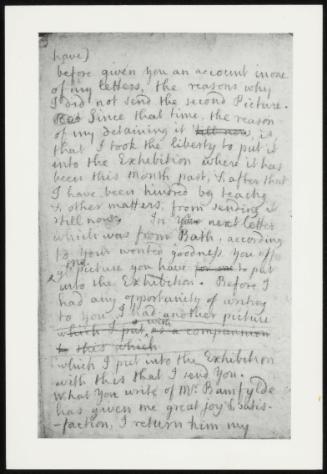 have)
before given you an account in one
of my letters, the reasons why
I did not send the second Picture.
Since that time, the reason
of my detaining it till now, is,
that I took the liberty to put it
into the Exhibition where it has
been this month past, & after that
I have been hindred by teachg
& other matters, from sending it
still now. In your next letter
which was from Bath, according
to your wonted goodness you off
me
ye picture you have for me to put
into the Exhibition. Before I
had any opportunity of writing
to you I had another picture
with
which I put as a companion
to this which
which I put into the Exhibition
with this that I send you.
What you write of Mr. Bamfylde
has given me great joy & satis-
-faction, I return him my